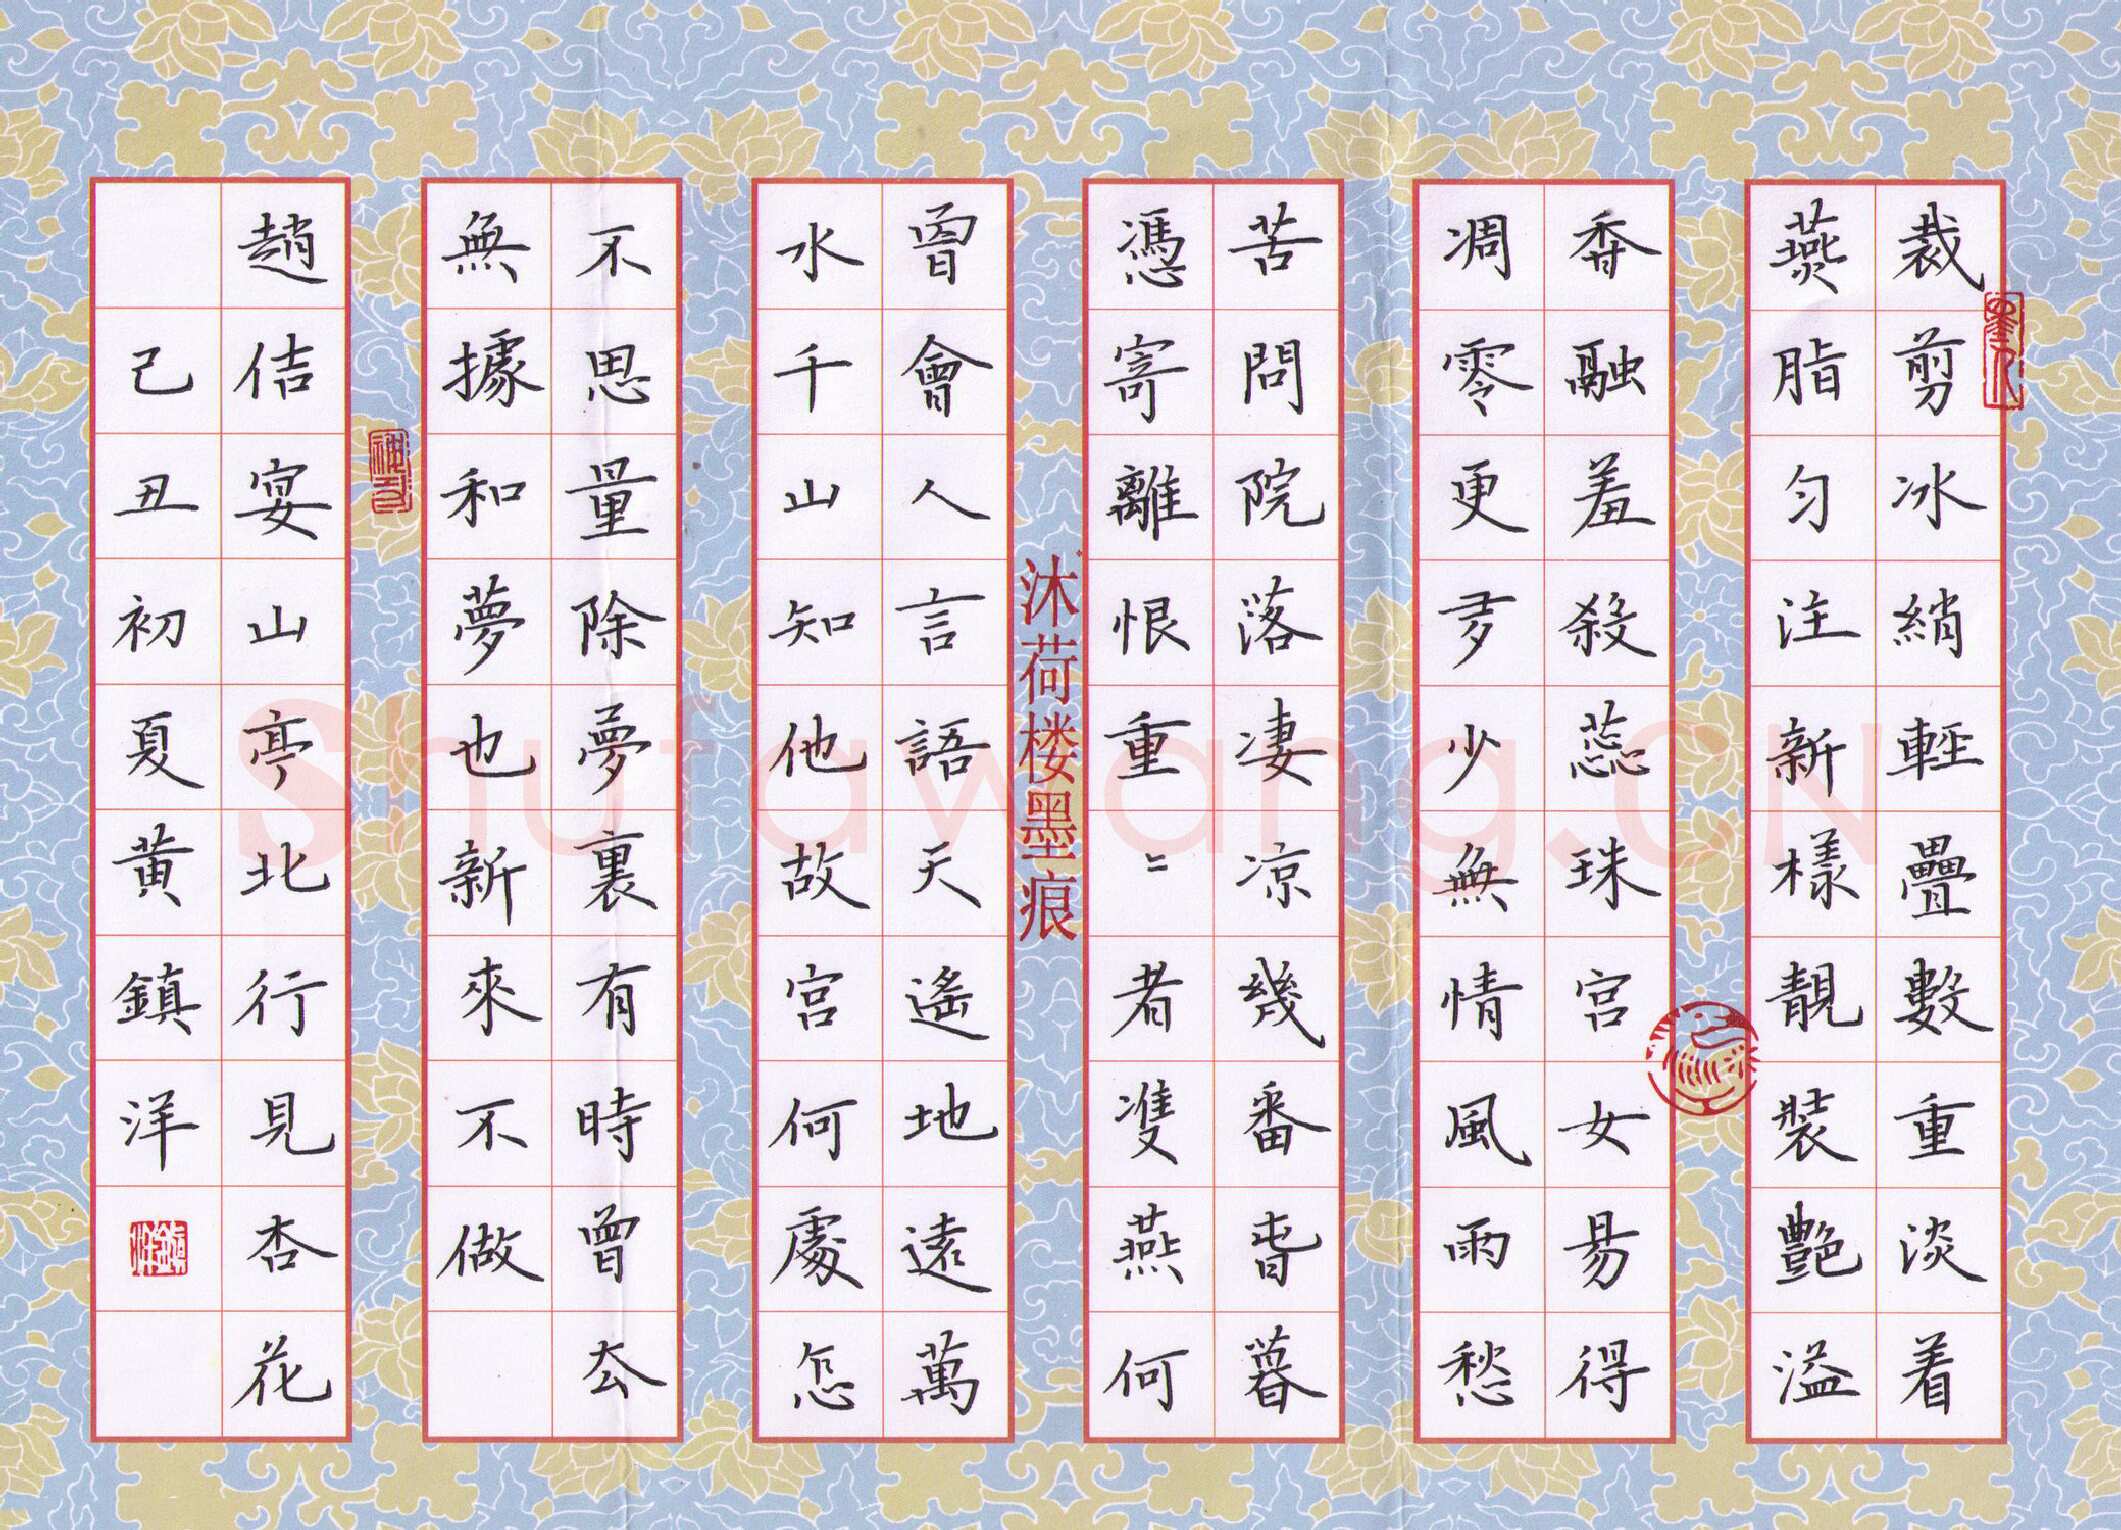 裁剪冰綃輕疊數重淡着
燕脂勻注新樣靚裝艷溢
香融羞殺蕊珠宮女易得
凋零更多少無情風雨愁
苦問院落淒凉幾番春暮
憑寄離恨重〻者雙燕何
曾會人言語天遙地遠萬
水千山知他故宮何處怎
不思量除夢裏有時曾去
無據和夢也新來不做
趙佶宴山亭北行見杏花
己丑初夏黃鎮洋
沐荷楼墨痕
Shufawang.CN